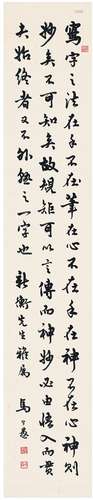 寫字之法在手不在筆在心不在手在神不在心神則
妙矣不可知矣故規矩可以言傳而神妙必由悟入而貫
夫始終者又不外熟之一字也 新衡先生雅屬 馬公愚